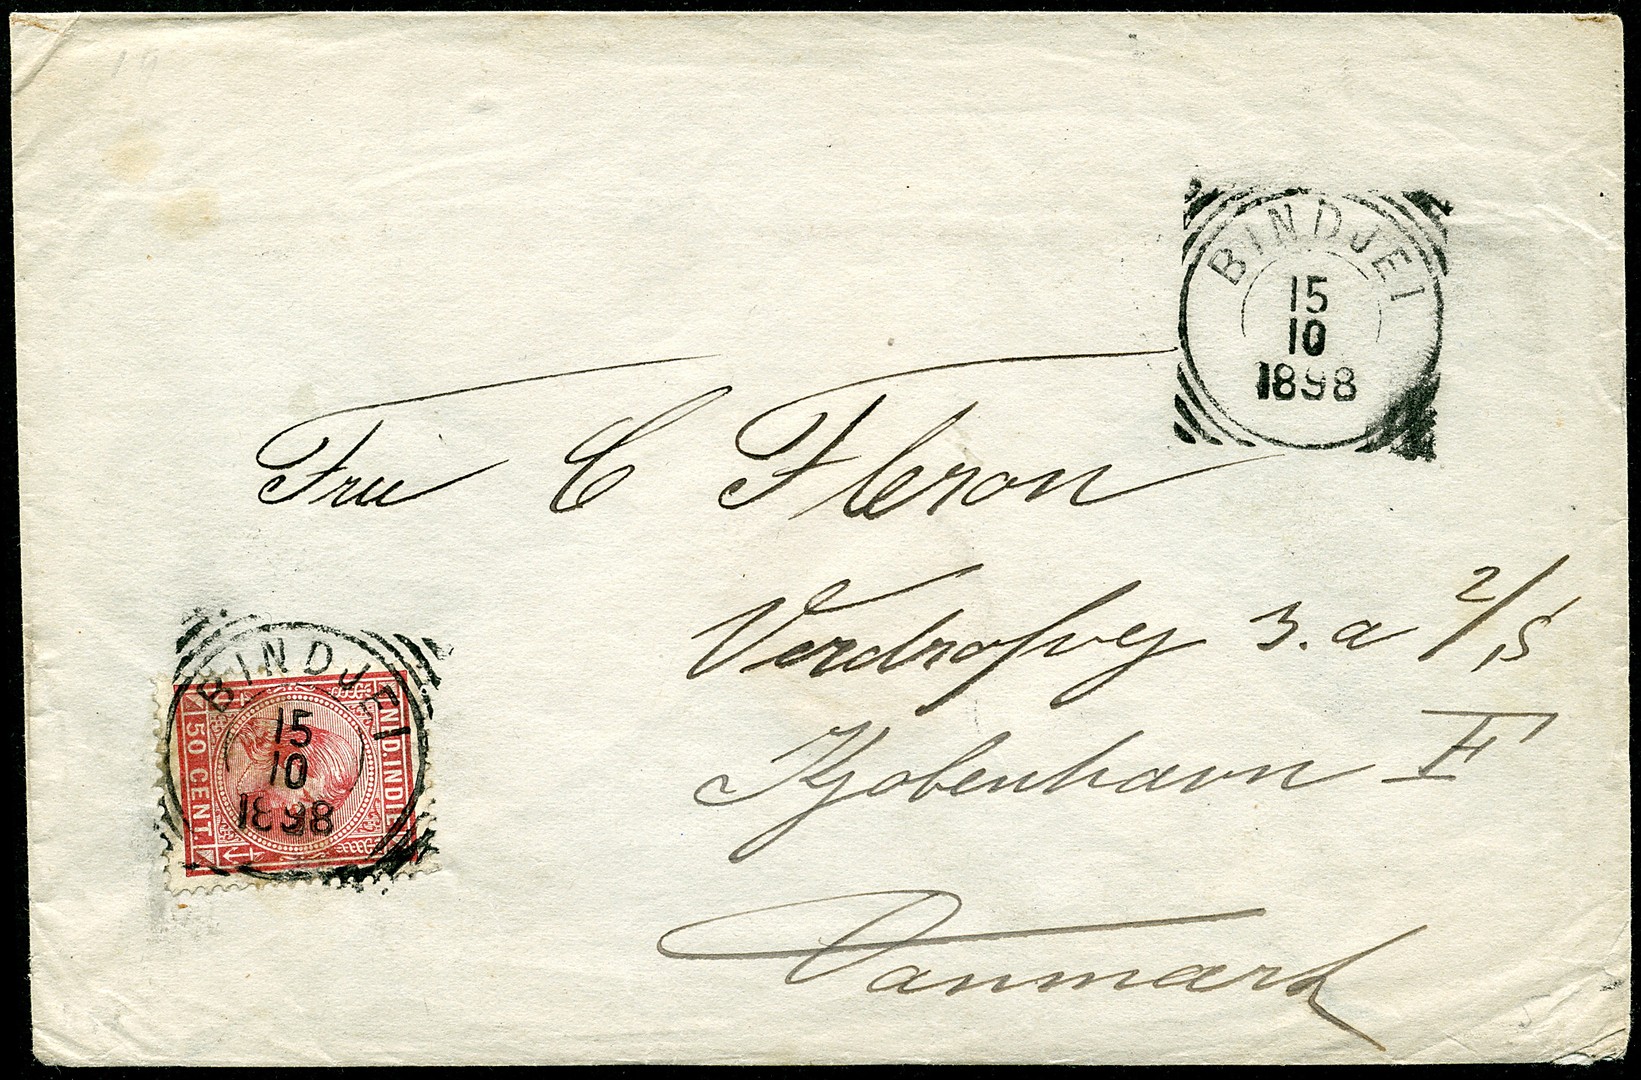 BINDJEI
15
10
1898
Frue C Fleron
Verdrofvej 3. a 2/, S
Kjobenhavn F
Danmark
BINDJEI
15
10
1898
NED. INDIE
50 CENT.